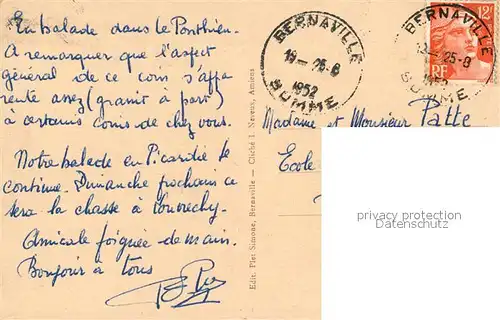 En balade dans le Ponthieu.
A remarquer que l'aspect
général de ce coin s'appa-
rente assez (granit à part)
à certains coins de chez vous.
Notre balade en Picardie se
continue. Dimanche prochain ce
sera la chasse à
Amicale poignée de main.
Bonjour à tous
Edit. Plet Simone, Bernaville — Cliché L. de Nevers, Amiens
BERNAVILLE
19 — 25-8
1952
SOMME
BERNAVILLE
19 — 25-8
1952
SOMME
12F
RF
Madame et Monsieur Patte
Ecole
privacy protection
Datenschutz